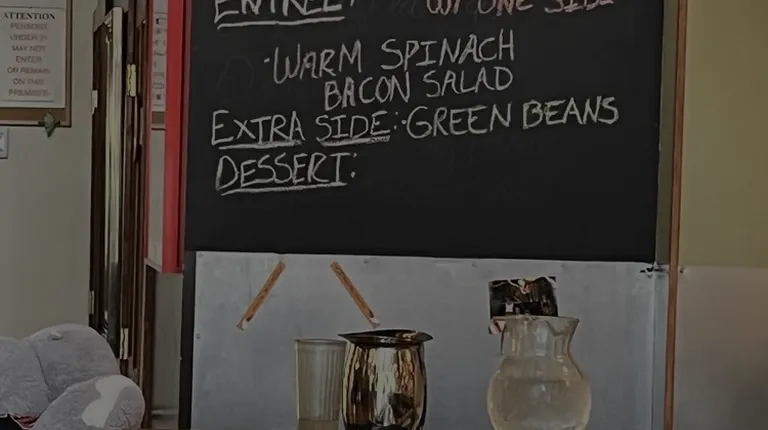 ATTENTION
PERSONS
UNDER 21
MAY NOT
ENTER
OR REMAIN
ON THIS
PREMISES
ENTREE:
W/ ONE SIDE
·WARM SPINACH
BACON SALAD
EXTRA SIDE:·GREEN BEANS
DESSERT: